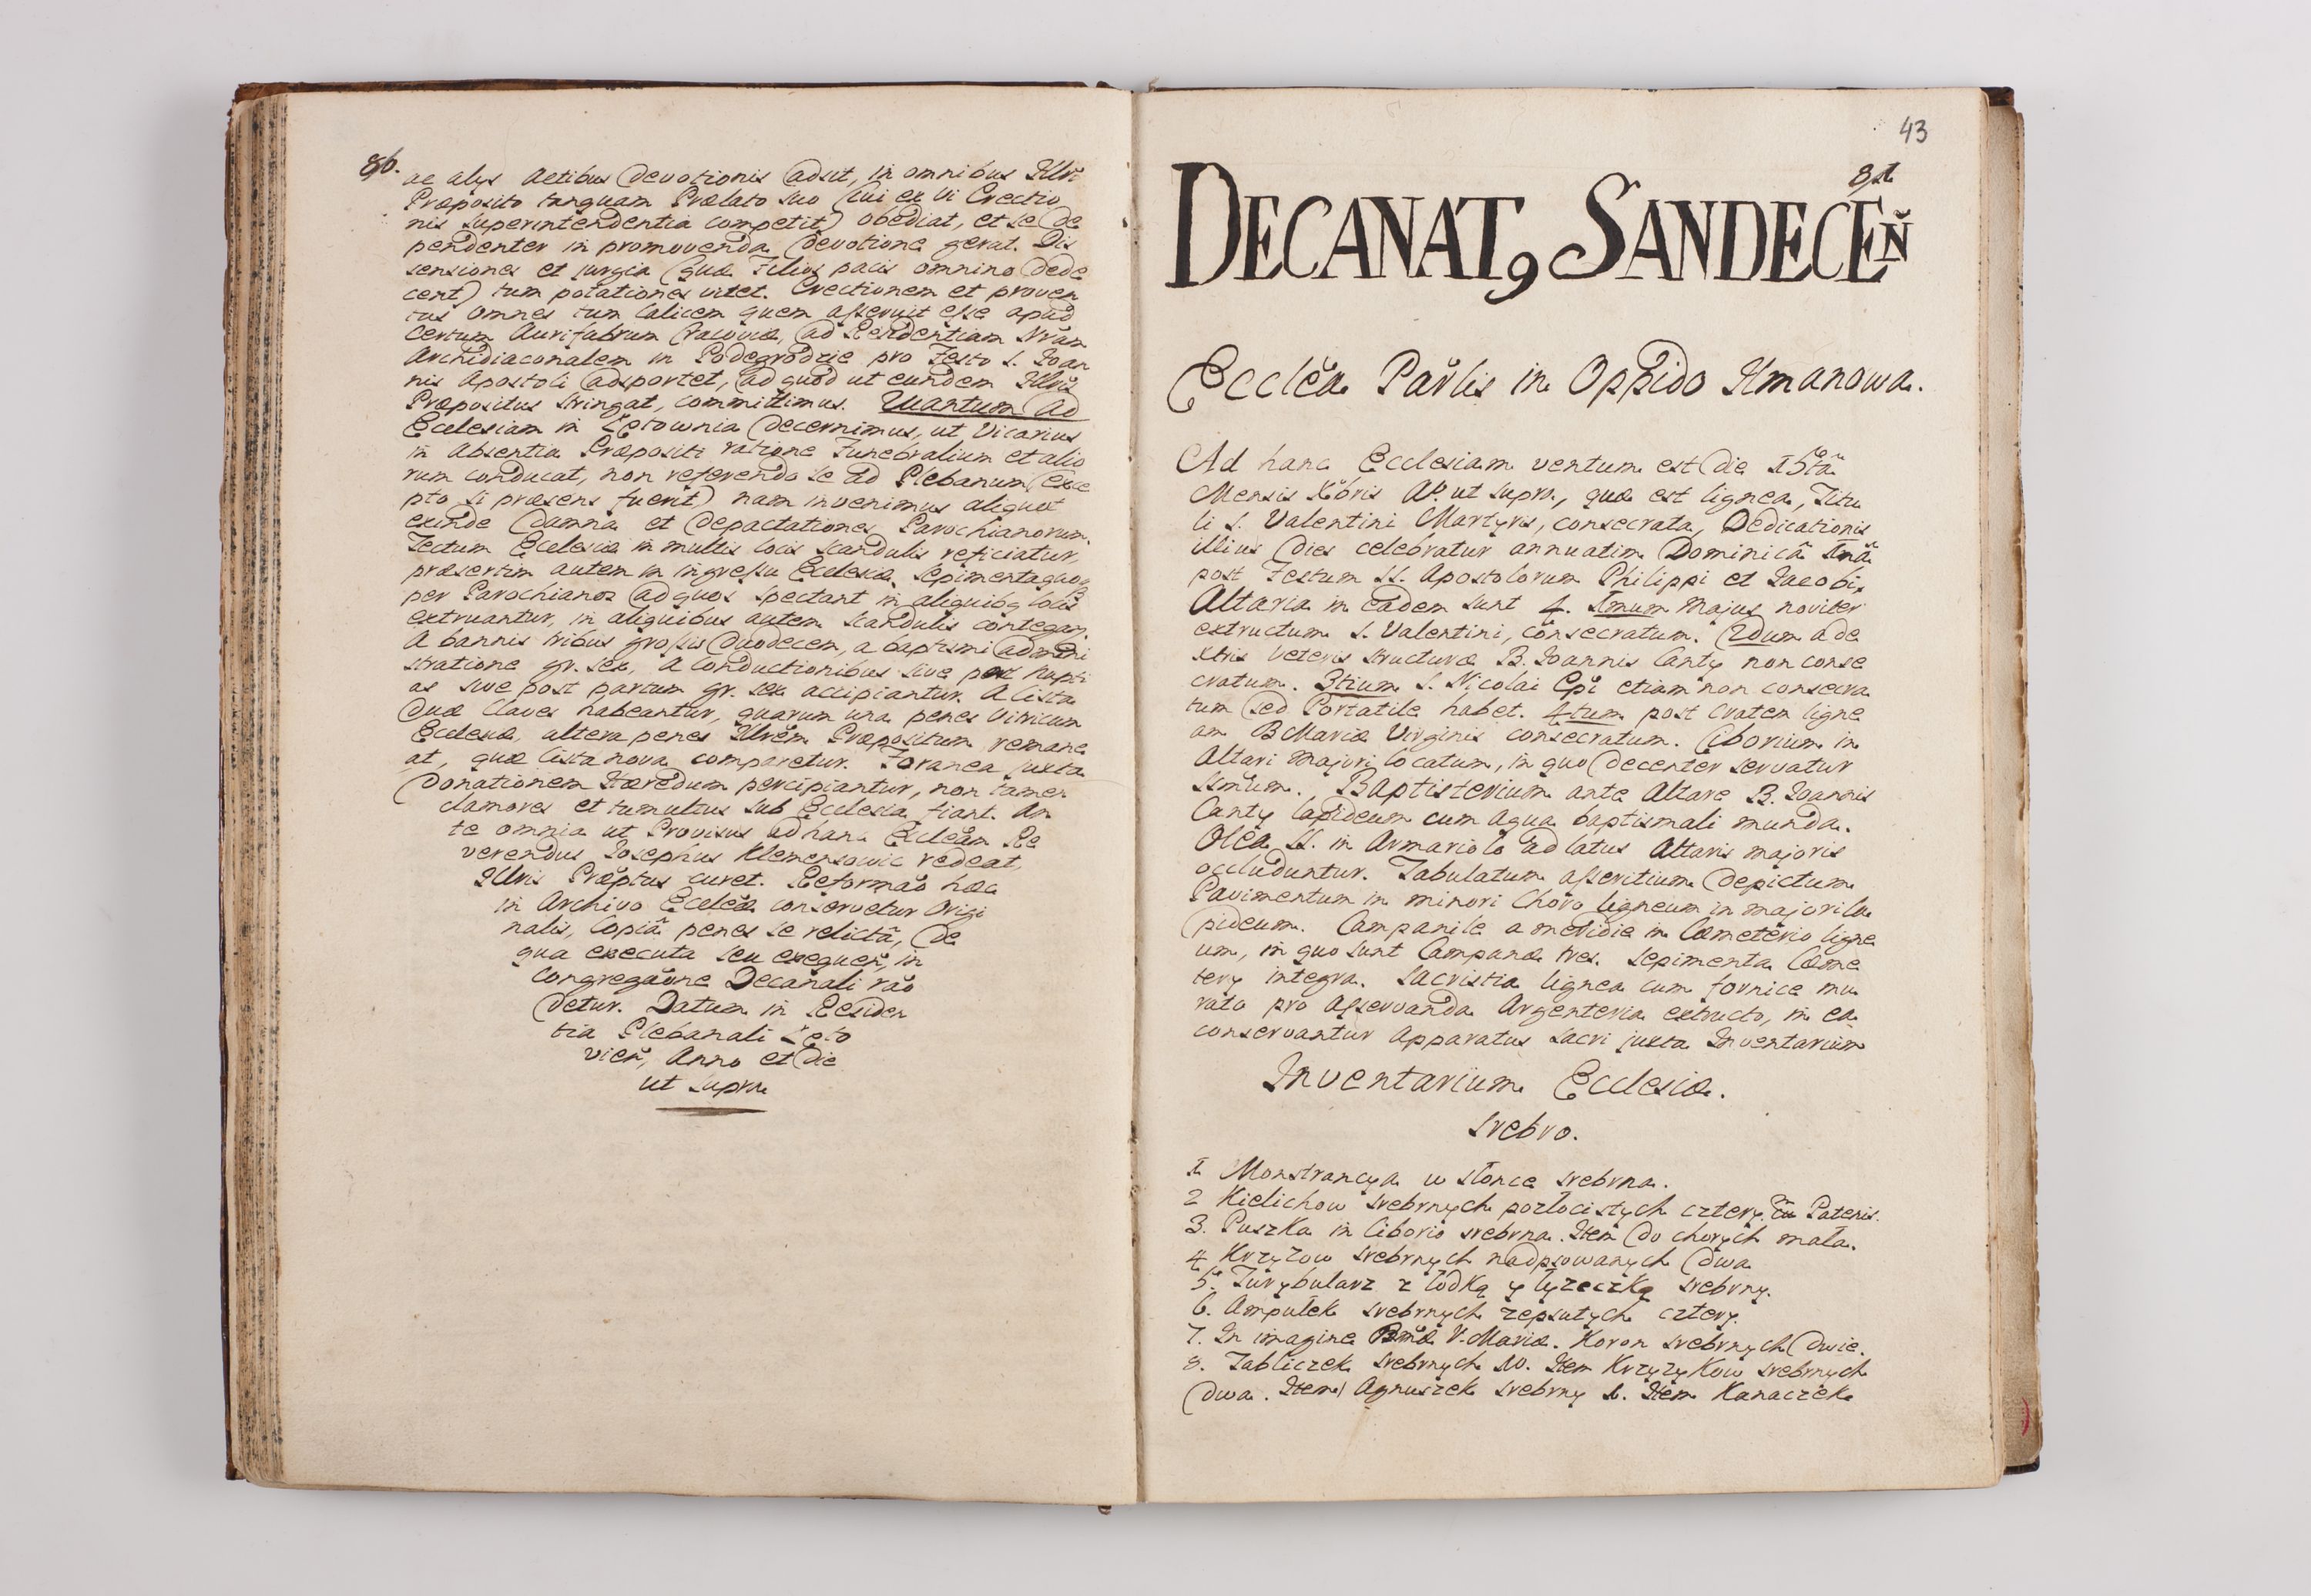 86.
ac alys Actibus devotionis adsit, in omnibus Illri
Præposito tanquam Prælato suo (cui ex vi Erectio
nis superintendentia competit) obediat, et se de
pendenter in promovenda devotione gerat. Dis
sensiones et jurgia (quæ Filios pacis omnino dede
cent) tum potationes vitet. Erectionem et proven
tus omnes tum Calicem quem asseruit esse apud
Certum Aurifabrum Cracoviæ, ad Residentiam Nram
Archidiaconalem in Podegrodzie pro Festo S. Joan
nis Apostoli adsportet, ad quod ut eundem Illris
Præpositus stringat, committimus. Quantum ad
Ecclesiam in Łętownia decernimus, ut Vicarius
in Absentia Præpositi ratione Funebralium et alio
rum conducat, non referendo se ad Plebanum (exce
pto si præsens fuerit) nam invenimus aliquot
exinde damna et depactationes Parochianorum.
Tectum Ecclesiæ in multis locis scandulis reficiatur,
præsertim autem in ingressu Ecclesiæ. Sepimentaquoq
per Parochianos ad quos spectant in aliquibq locis
extruantur, in aliquibus autem scandulis contegant.
A bannis tribus grossis duodecem, a baptismi admini
stratione gr. sex, a conductionibus sive post nupti
as sive post partum gr. sex accipiantur. A Cista
duæ Claves habeantur, quarum una penes Vitricum
Ecclesiæ, altera penes Illrem Præpositum remane
at, quæ Cista nova comparetur. Foranea juxta
Donationem Hæredum percipiantur, non tamen
clamores et tumultus sub Ecclesia fiant. An
te omnia ut Provisus ad hanc Eccleam Re
verendus Josephus Klemensowic redeat,
Illris Præptus curet. Reformao hæc
in Archivo Eccleæ conservetur Origi
nalis, Copiâ penes se relictâ, de
qua executa seu exequen, in
Congregaone Decanali rao
detur. Datum in Residen
tia Plebanali Łęto
vien, Anno et Die
ut supra
43
81
DECANAT9 SANDECEŇ
Ecclea Parlis in Oppido Ilmanowa.
Ad hanc Ecclesiam ventum est die 15ta
Mensis Xbris Ao. ut supra, quæ est lignea, Titu
li S. Valentini Martyris, consecrata, Dedicationis
illius dies celebratur annuatim Dominicâ 1mâ
post Festum SS. Apostolorum Philippi et Jacobi,
Altaria in eadem sunt 4. 1mum majus noviter
extructum S. Valentini, consecratum. 2dum a de
xtris veteris structuræ B. Joannis Canty non conse
cratum. 3tium S. Nicolai Epi etiam non consecra
tum sed Portatile habet. 4tum post Cratem ligne
am B Mariæ Virginis consecratum. Ciborium in
Altari majori locatum, in quo decenter servatur
Ssmum. Baptisterium ante Altare B. Joannis
Canty lapideum cum aqua baptismali munda.
Olea SS. in Armariolo ad latus Altaris majoris
occluduntur. Tabulatum asseritium depictum
Pavimentum in minori Choro ligneum in majori la
pideum. Campanile a meridie in Cæmeterio ligne
um, in quo sunt Campanæ tres. Sepimenta Cæme
tery integra. Sacristia lignea cum fornice mu
rato pro asservanda Argenteria extructo, in ea
conservantur Apparatus sacri juxta Inventarium
Inventarium Ecclesiæ.
Srebro.
1 Monstrancya w słonce srebrna.
2 Kielichow srebrnych pozłocistych cztery. cu Patenis.
3. Puszka in Ciborio srebrna. Item do chorych mała.
4 Krzyzow srebrnych nadpsowanych dwa
5. Turybularz z łodką y łyzeczką srebrny.
6. Ampułek srebrnych zepsutych cztery.
7. In imagine Bmæ V. Mariæ. Koron srebrnych dwie.
8. Tabliczek srebrnych 10. Item Krzyzykow srebrnych
dwa. Item Agnuszek srebrny 1. Item Kanaczek